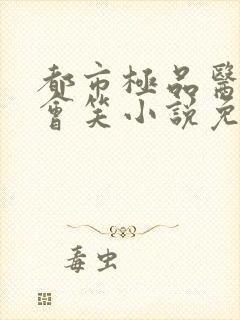 都市極品醫
會笑小說免
毒虫